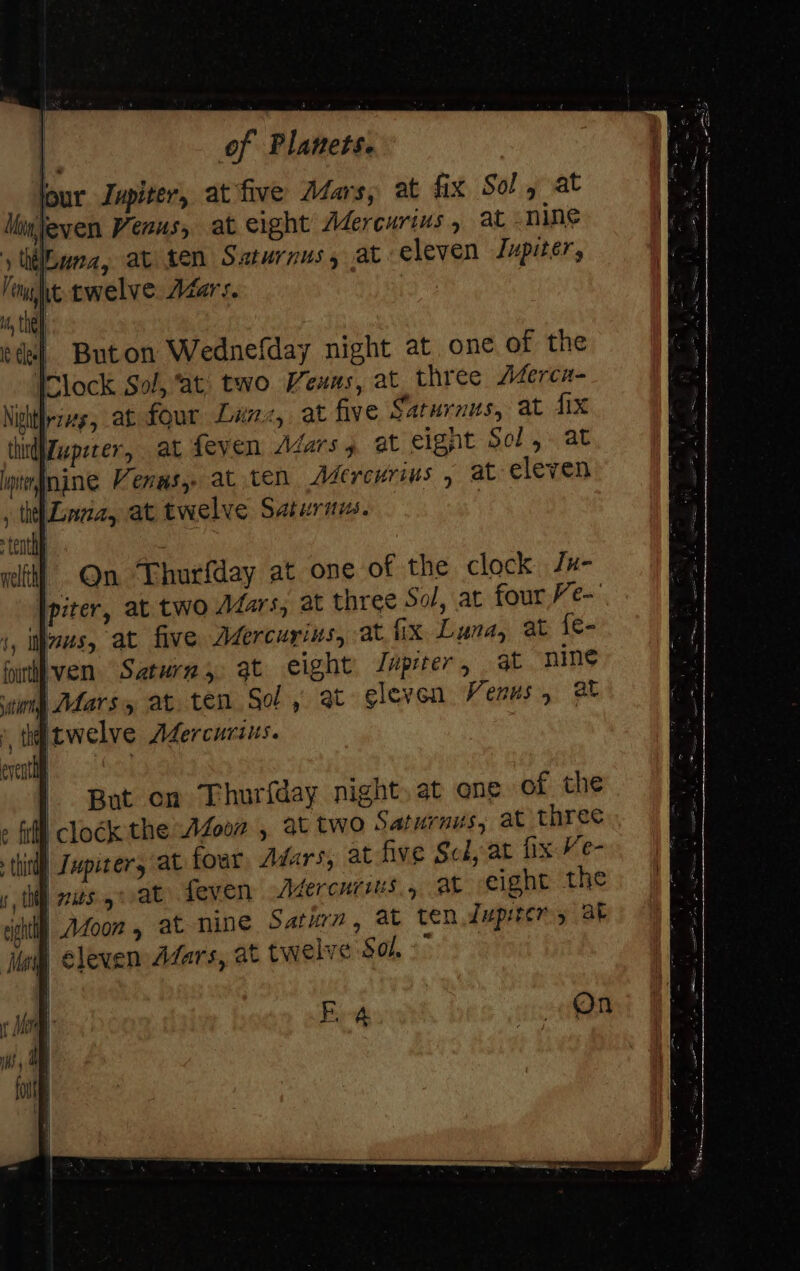 of Planets.
our Iupiter, at five Mars, at ſix Sol, at
even Venus, at eight Mercurius, at nine
Luna, at ten Saturnus, at eleven Iupiter,
twelve Mars.
But on Wedneſday night at one of the
Clock Sol, at two Venus, at three Mercu-
rius, at four Luna, at five Saturnus, at ſix
Iupiter, at ſeven Mars, at eight Sol, at
nine Venus, at ten Mercurius, at eleven
Luna, at twelve Saturnus.
On Thurſday at one of the clock Ju-
piter, at two Mars, at three Sol, at four Ve-
nus, at five Mercurius, at ſix Luna, at ſe-
ven Saturn, at eight Jupiter, at nine
Mars, at ten Sol, at eleven Venus, at
twelve Mercurius.
But on Thurſday night at one of the
clock the Moon, at two Saturnus, at three
Jupiter, at four Mars, at five Sol, at ſix Ve-
nus, at ſeven Mercurius, at eight the
Moon, at nine Saturn, at ten Jupiter, at
eleven Mars, at twelve Sol.
E 4 On